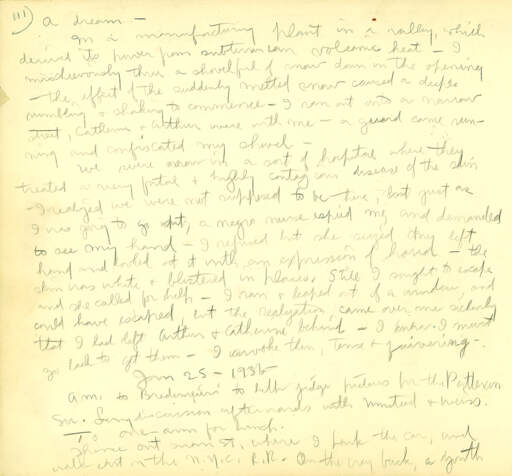 111) A dream —
In a manufacturing plant in a valley, which
derived its power from subterranean volcanic heat — I
mischievously threw a shovelful of snow down in the opening
— the effect of the suddenly melted snow caused a deep
rumbling & shaking to commence — I ran out into a narrow
street, Catherine & Arthur were with me — a guard came run-
ning and confiscated my shovel —
We were now in a sort of hospital where they
treated a very fatal & highly contagious disease of the skin
— I realized we were not supposed to be here, but just as
I was going to go out, a negro nurse espied me, and demanded
to see my hand — I refused but she seized my left
hand and looked at it with an expression of horror — the
skin was white & blistered in places. Still I sought to escape
and she called for help — I ran & leaped out of a window, and
could have escaped, but the realization came over me suddenly
that I had left Arthur & Catherine behind — I knew I must
go back to get them — I awoke then, tense & quivering —
Jan 25 – 1936
A.M. to to help judge pictures for the Patteran
Soc. Long discussion afterwards with and Weiss.
To one-arm for lunch.
Thence out st, where I park the car, and
walk east in the N.Y.C. R.R. On the way back, a